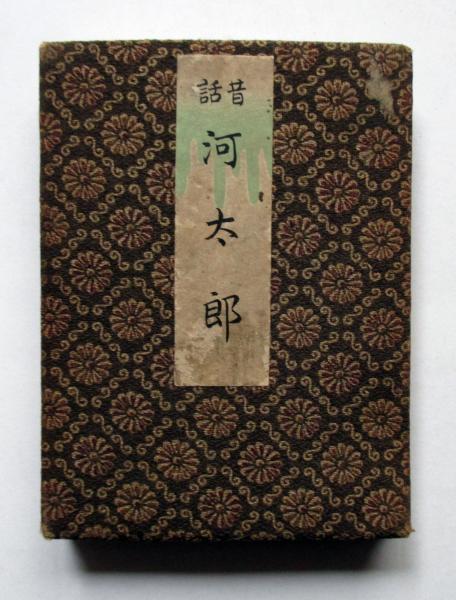 昔話
河太郎